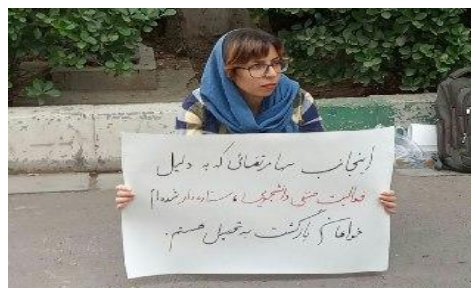 اینجانب سها مرتضائی که به دلیل
فعالیت صنفی دانشجویی، ستاره‌دار شده‌ام
خواهان بازگشت به تحصیل هستم.